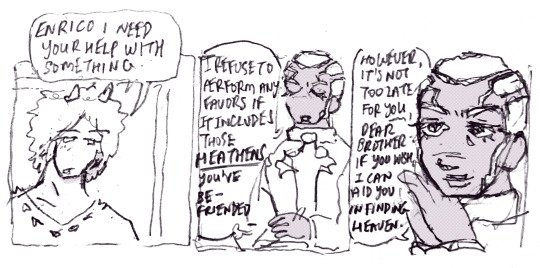 ENRICO I NEED
YOUR HELP WITH
SOMETHING.
I REFUSE TO
PERFORM ANY
FAVORS IF
IT INCLUDES
THOSE
HEATHENS
YOU'VE
BE-
FRIENDED
HOWEVER,
IT'S NOT
TOO LATE
FOR YOU
DEAR
BROTHER
IF YOU WISH,
I CAN
AID YOU
IN FINDING
HEAVEN.